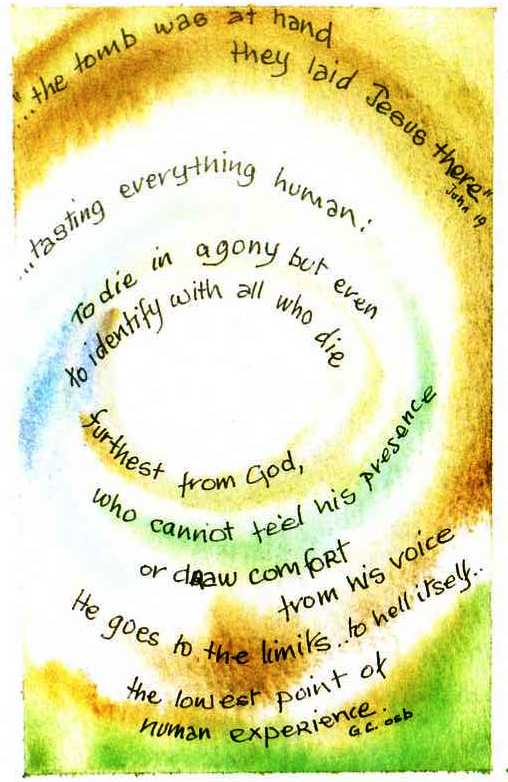 "...the tomb was at hand
they laid Jesus there"
John 19
...tasting everything human:
To die in agony but even
to identify with all who die
furthest from God,
who cannot feel his presence
or draw comfort
from his voice
He goes to the limits...to hell itself...
the lowest point of
human experience.
G.C. osb